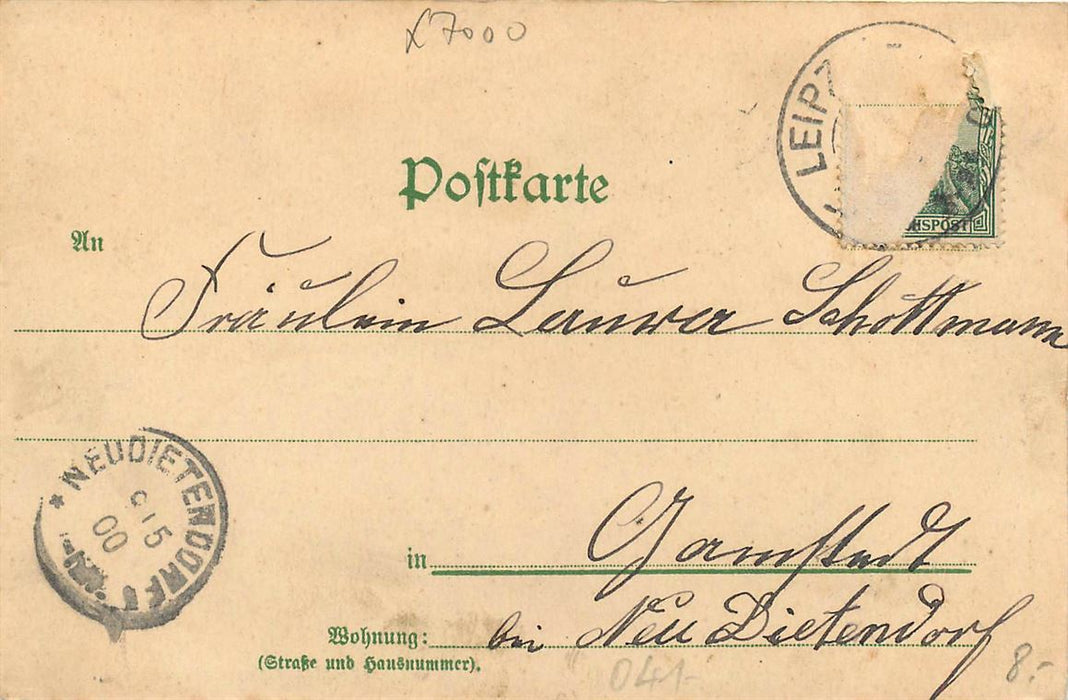 L7000
LEIPZ
HSPOST
Postkarte
An
Fräulein Laura Schottmann
* NEUDIETENDORF
9/5
00
in Gamstedt
Wohnung: bei Neu Dietendorf
(Straße und Hausnummer).
041-
8.-